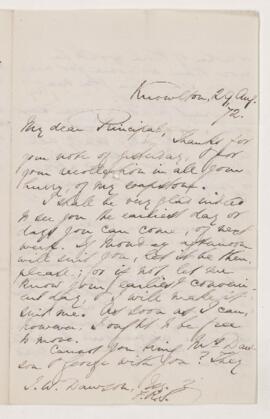 Knowlton, 29 Aug.
/72.
My dear Principal,
Thanks for
your note of yesterday, & for
your recollection in all your
hurry, of my
I shall be very glad indeed
to see you the earliest day or
days you can come, of next
week. If Monday afternoon
will suit you, let it be then,
please; or if not, let me
know your earliest convenient
day, & I will make it
suit me. As soon as I can,
however, I ought to be free
to move.
Cannot you bring Mrs Daw-
son & George with you? They
J. W. Dawson, Esq.
F.R.S.